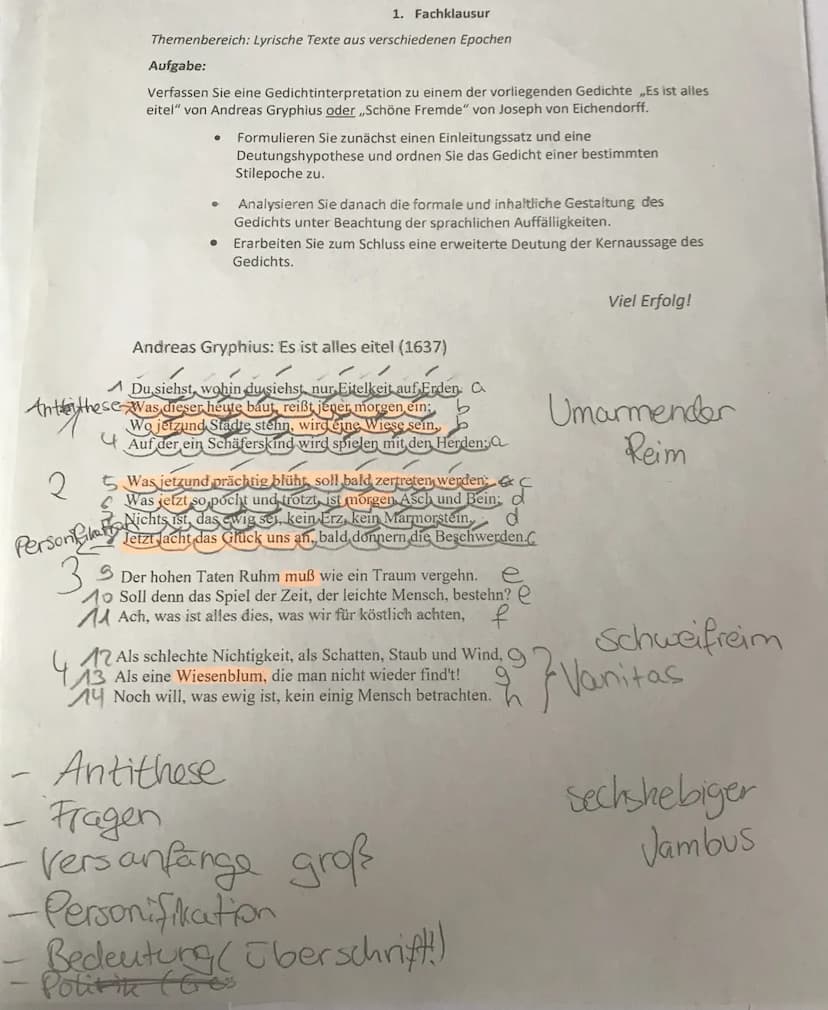 1. Fachklausur
Themenbereich: Lyrische Texte aus verschiedenen Epochen
Aufgabe:
Verfassen Sie eine Gedichtinterpretation zu einem der vorliegenden Gedichte „Es ist alles
eitel" von Andreas Gryphius oder „Schöne Fremde" von Joseph von Eichendorff.
• Formulieren Sie zunächst einen Einleitungssatz und eine
Deutungshypothese und ordnen Sie das Gedicht einer bestimmten
Stilepoche zu.
• Analysieren Sie danach die formale und inhaltliche Gestaltung des
Gedichts unter Beachtung der sprachlichen Auffälligkeiten.
• Erarbeiten Sie zum Schluss eine erweiterte Deutung der Kernaussage des
Gedichts.
Viel Erfolg!
Andreas Gryphius: Es ist alles eitel (1637)
1 Du siehst, wohin du siehst, nur Eitelkeit auf Erden. a
Antithese Was dieser heute baut, reißt jener morgen ein; b
Wo jetzund Städte stehn, wird eine Wiese sein, b
4 Auf der ein Schäferskind wird spielen mit den Herden; a
Umarmender
Reim
2
5 Was jetzund prächtig blüht, soll bald zertreten werden; c
6 Was jetzt so pocht und trotzt, ist morgen Asch und Bein; d
Nichts ist, das ewig sei, kein Erz, kein Marmorstein, d
Personifikation Jetzt lacht das Glück uns an, bald donnern die Beschwerden. c
3
9 Der hohen Taten Ruhm muß wie ein Traum vergehn. e
10 Soll denn das Spiel der Zeit, der leichte Mensch, bestehn? e
11 Ach, was ist alles dies, was wir für köstlich achten, f
4
12 Als schlechte Nichtigkeit, als Schatten, Staub und Wind, g
13 Als eine Wiesenblum, die man nicht wieder find't! g
14 Noch will, was ewig ist, kein einig Mensch betrachten. h
Schweifreim
Vanitas
- Antithese
- Fragen
- Versanfänge groß
- Personifikation
- Bedeutung (Überschrift!)
sechshebiger
Jambus